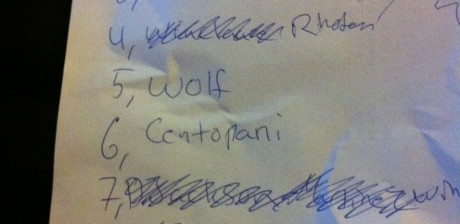 4, Rhoden
5, Wolf
6, Centopani
7,